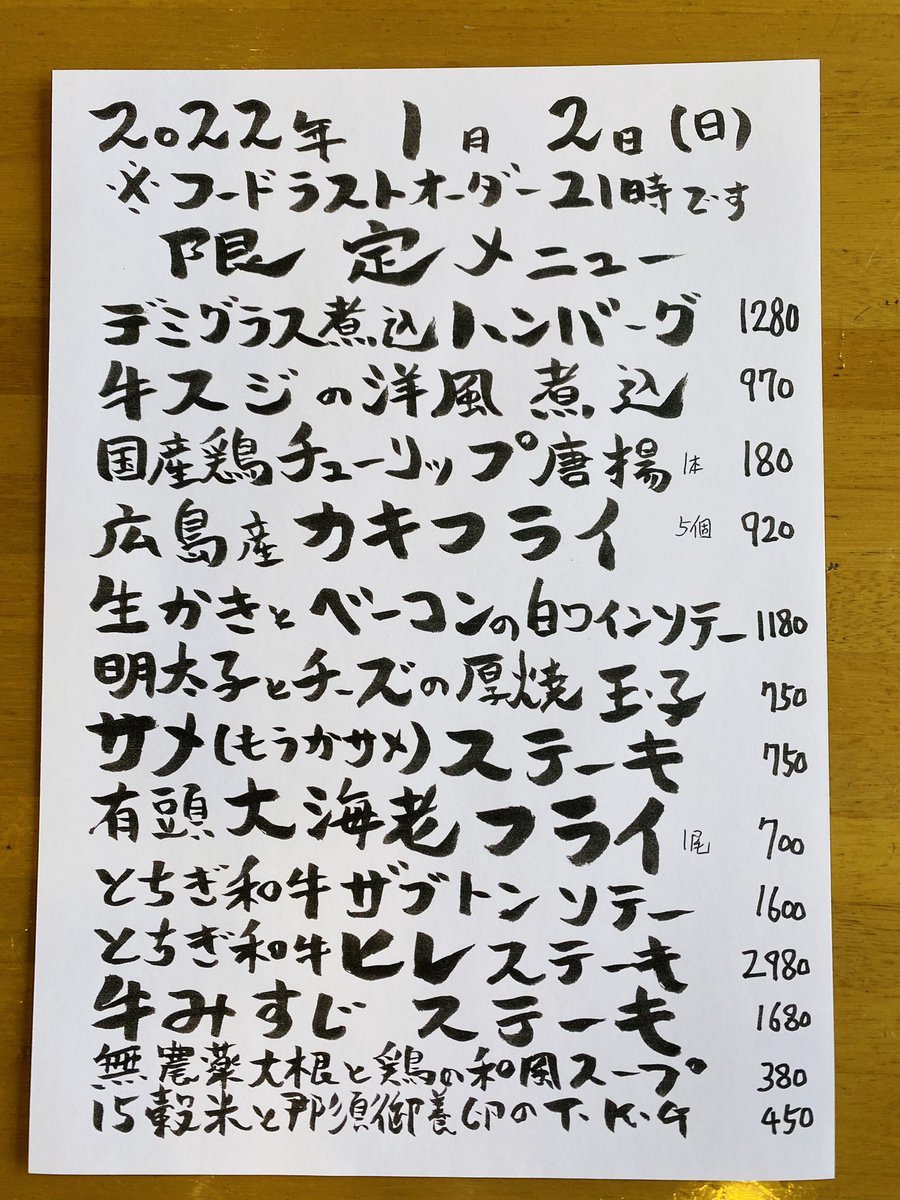 2022年 1月 2日(日)
※フードラストオーダー21時です
限定メニュー
デミグラス煮込ハンバーグ 1280
牛スジの洋風煮込 970
国産鶏チューリップ唐揚 1本 180
広島産カキフライ 5個 920
生かきとベーコンの白ワインソテー 1180
明太子とチーズの厚焼玉子 750
サメ(もうかサメ)ステーキ 750
有頭大海老フライ 1尾 700
とちぎ和牛ザブトンソテー 1600
とちぎ和牛ヒレステーキ 2980
牛みすじステーキ 1680
無農薬大根と鶏の和風スープ 380
15穀米と那須御養卵のT.K.G 450